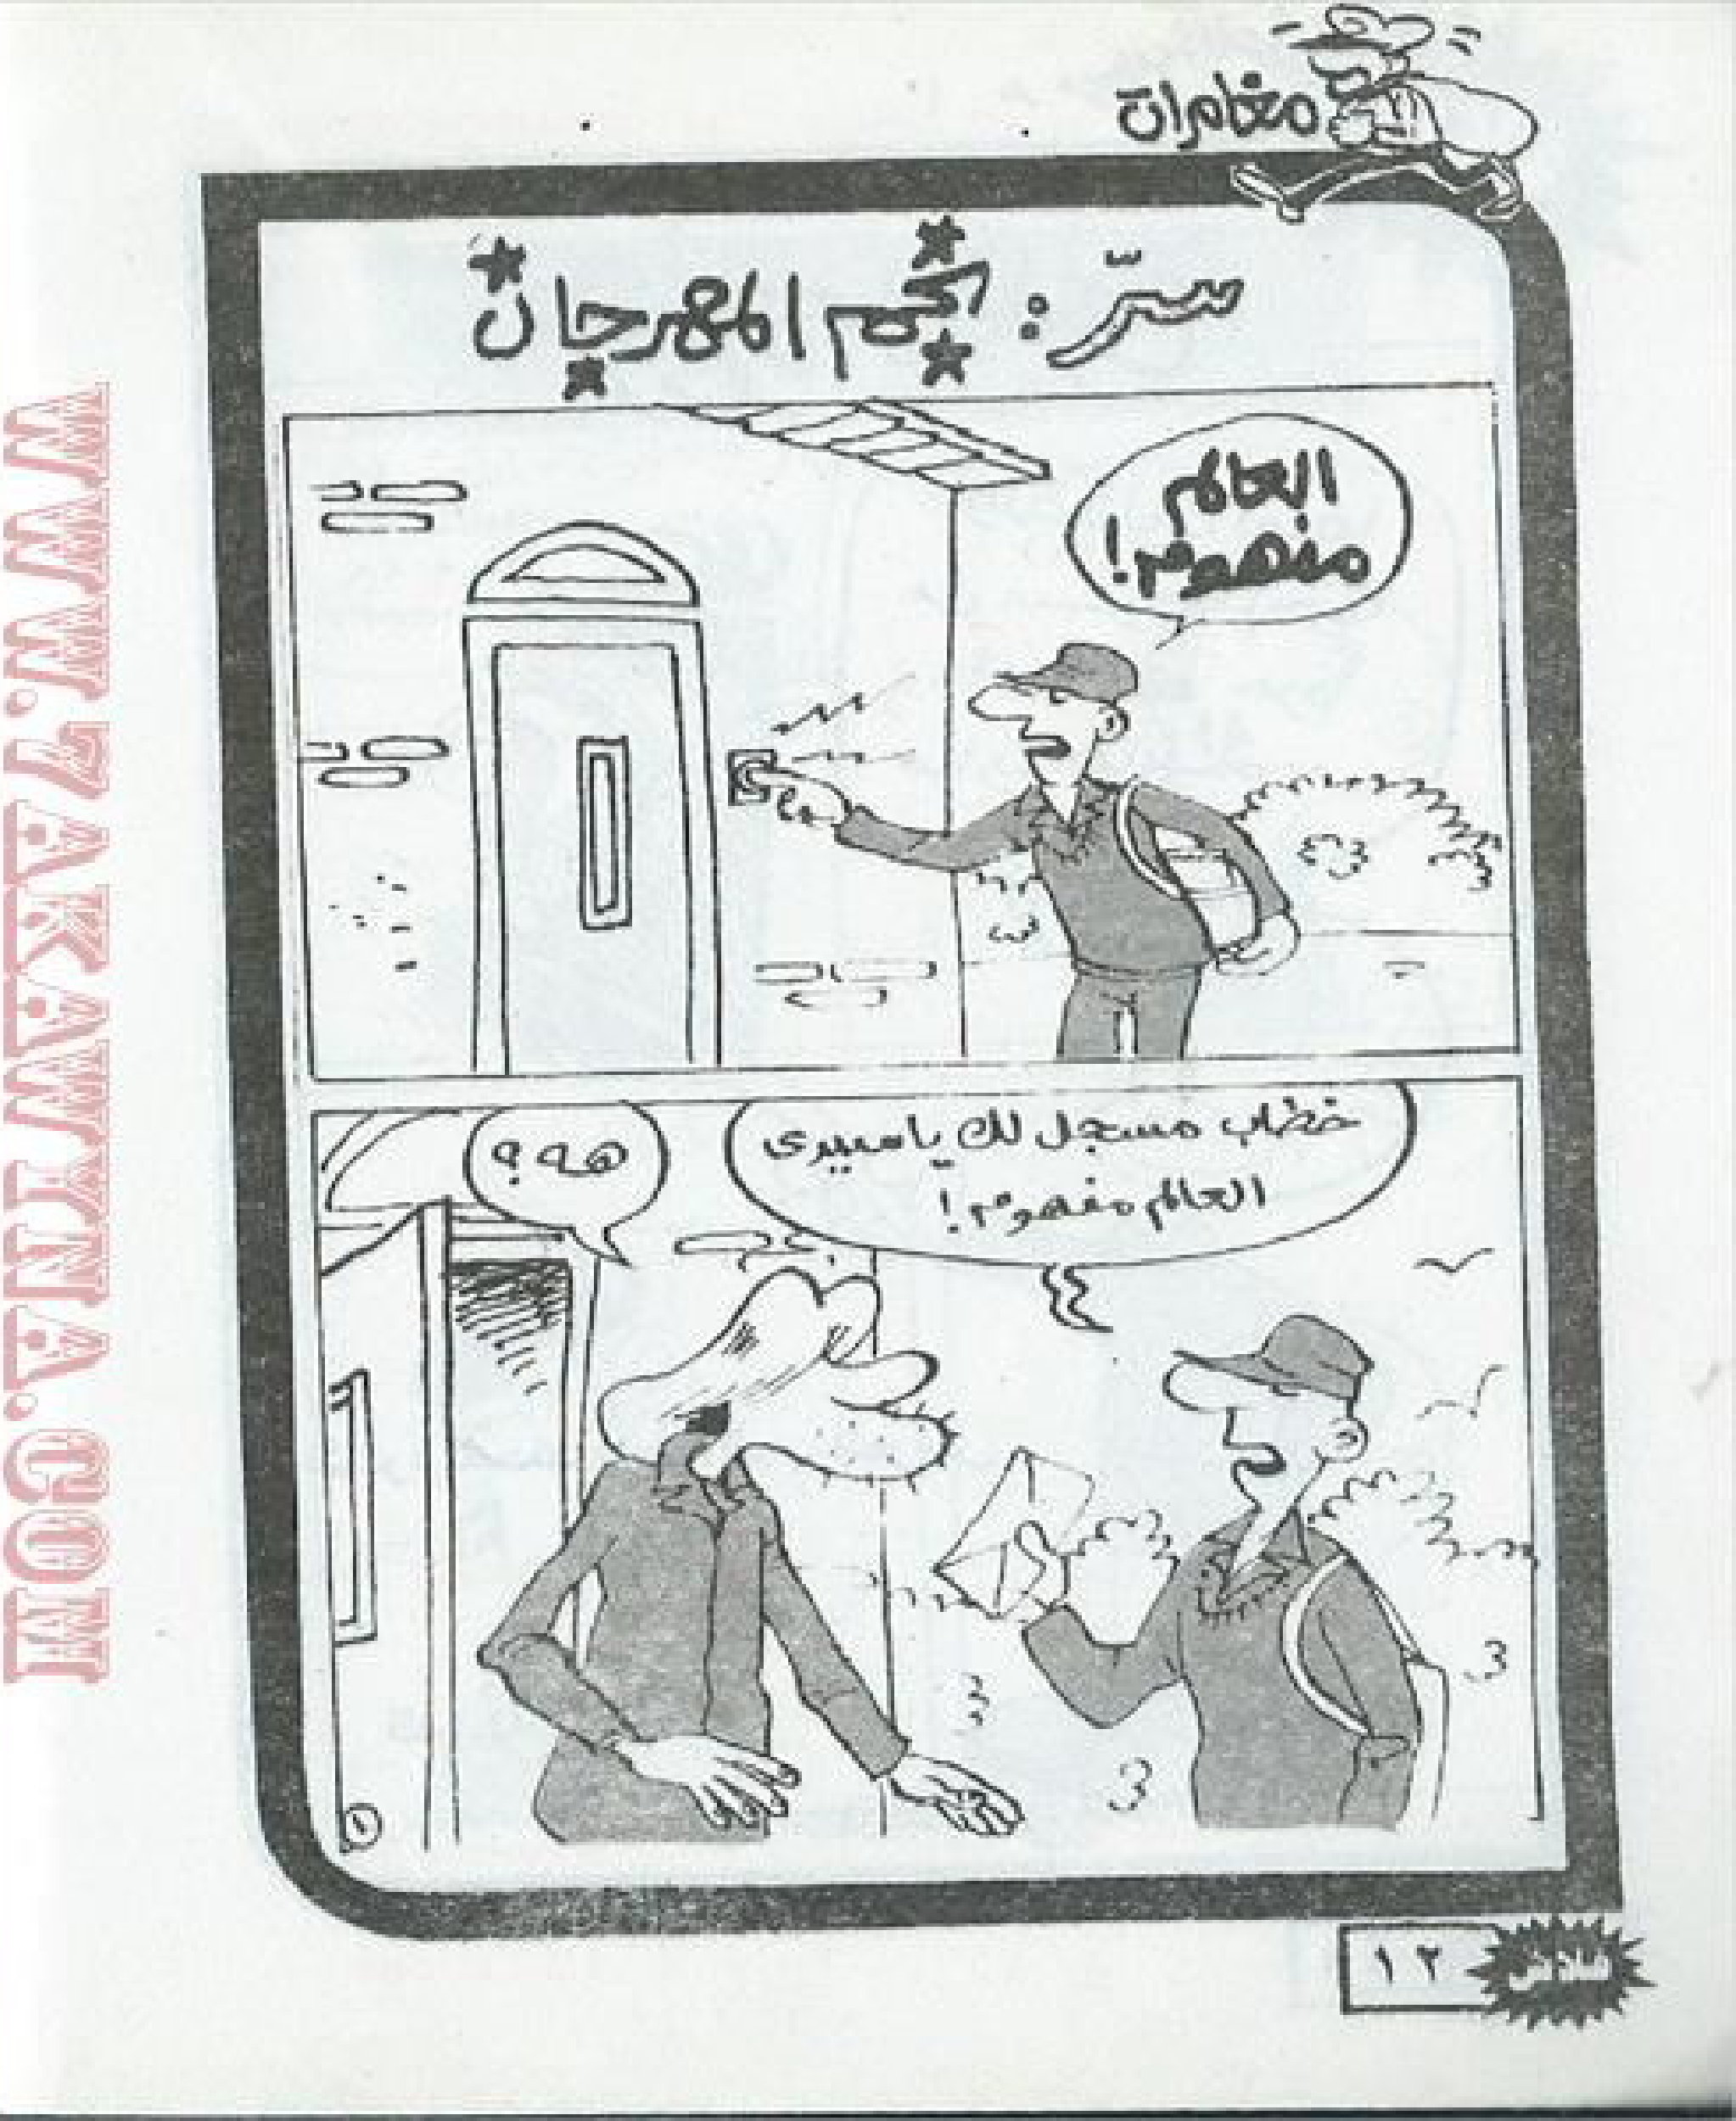 مغامرات
سرّ: نجم المهرجان
العالم
منهوم!
خطاب مسجل لك يا سيدى
العالم منهوم!
هه؟
١
فلاش
١٢
WWW.7AKAWITNA.COM